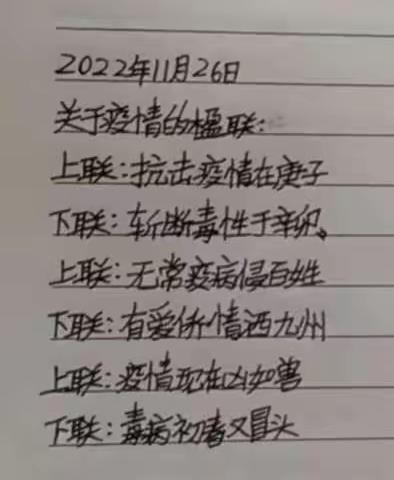 2022年11月26日
关于疫情的楹联:
上联:抗击疫情在庚子
下联:斩断毒性于辛卯。
上联:无常疫病侵百姓
下联:有爱侨情洒九州
上联:疫情现在凶如兽
下联:毒病初春又冒头